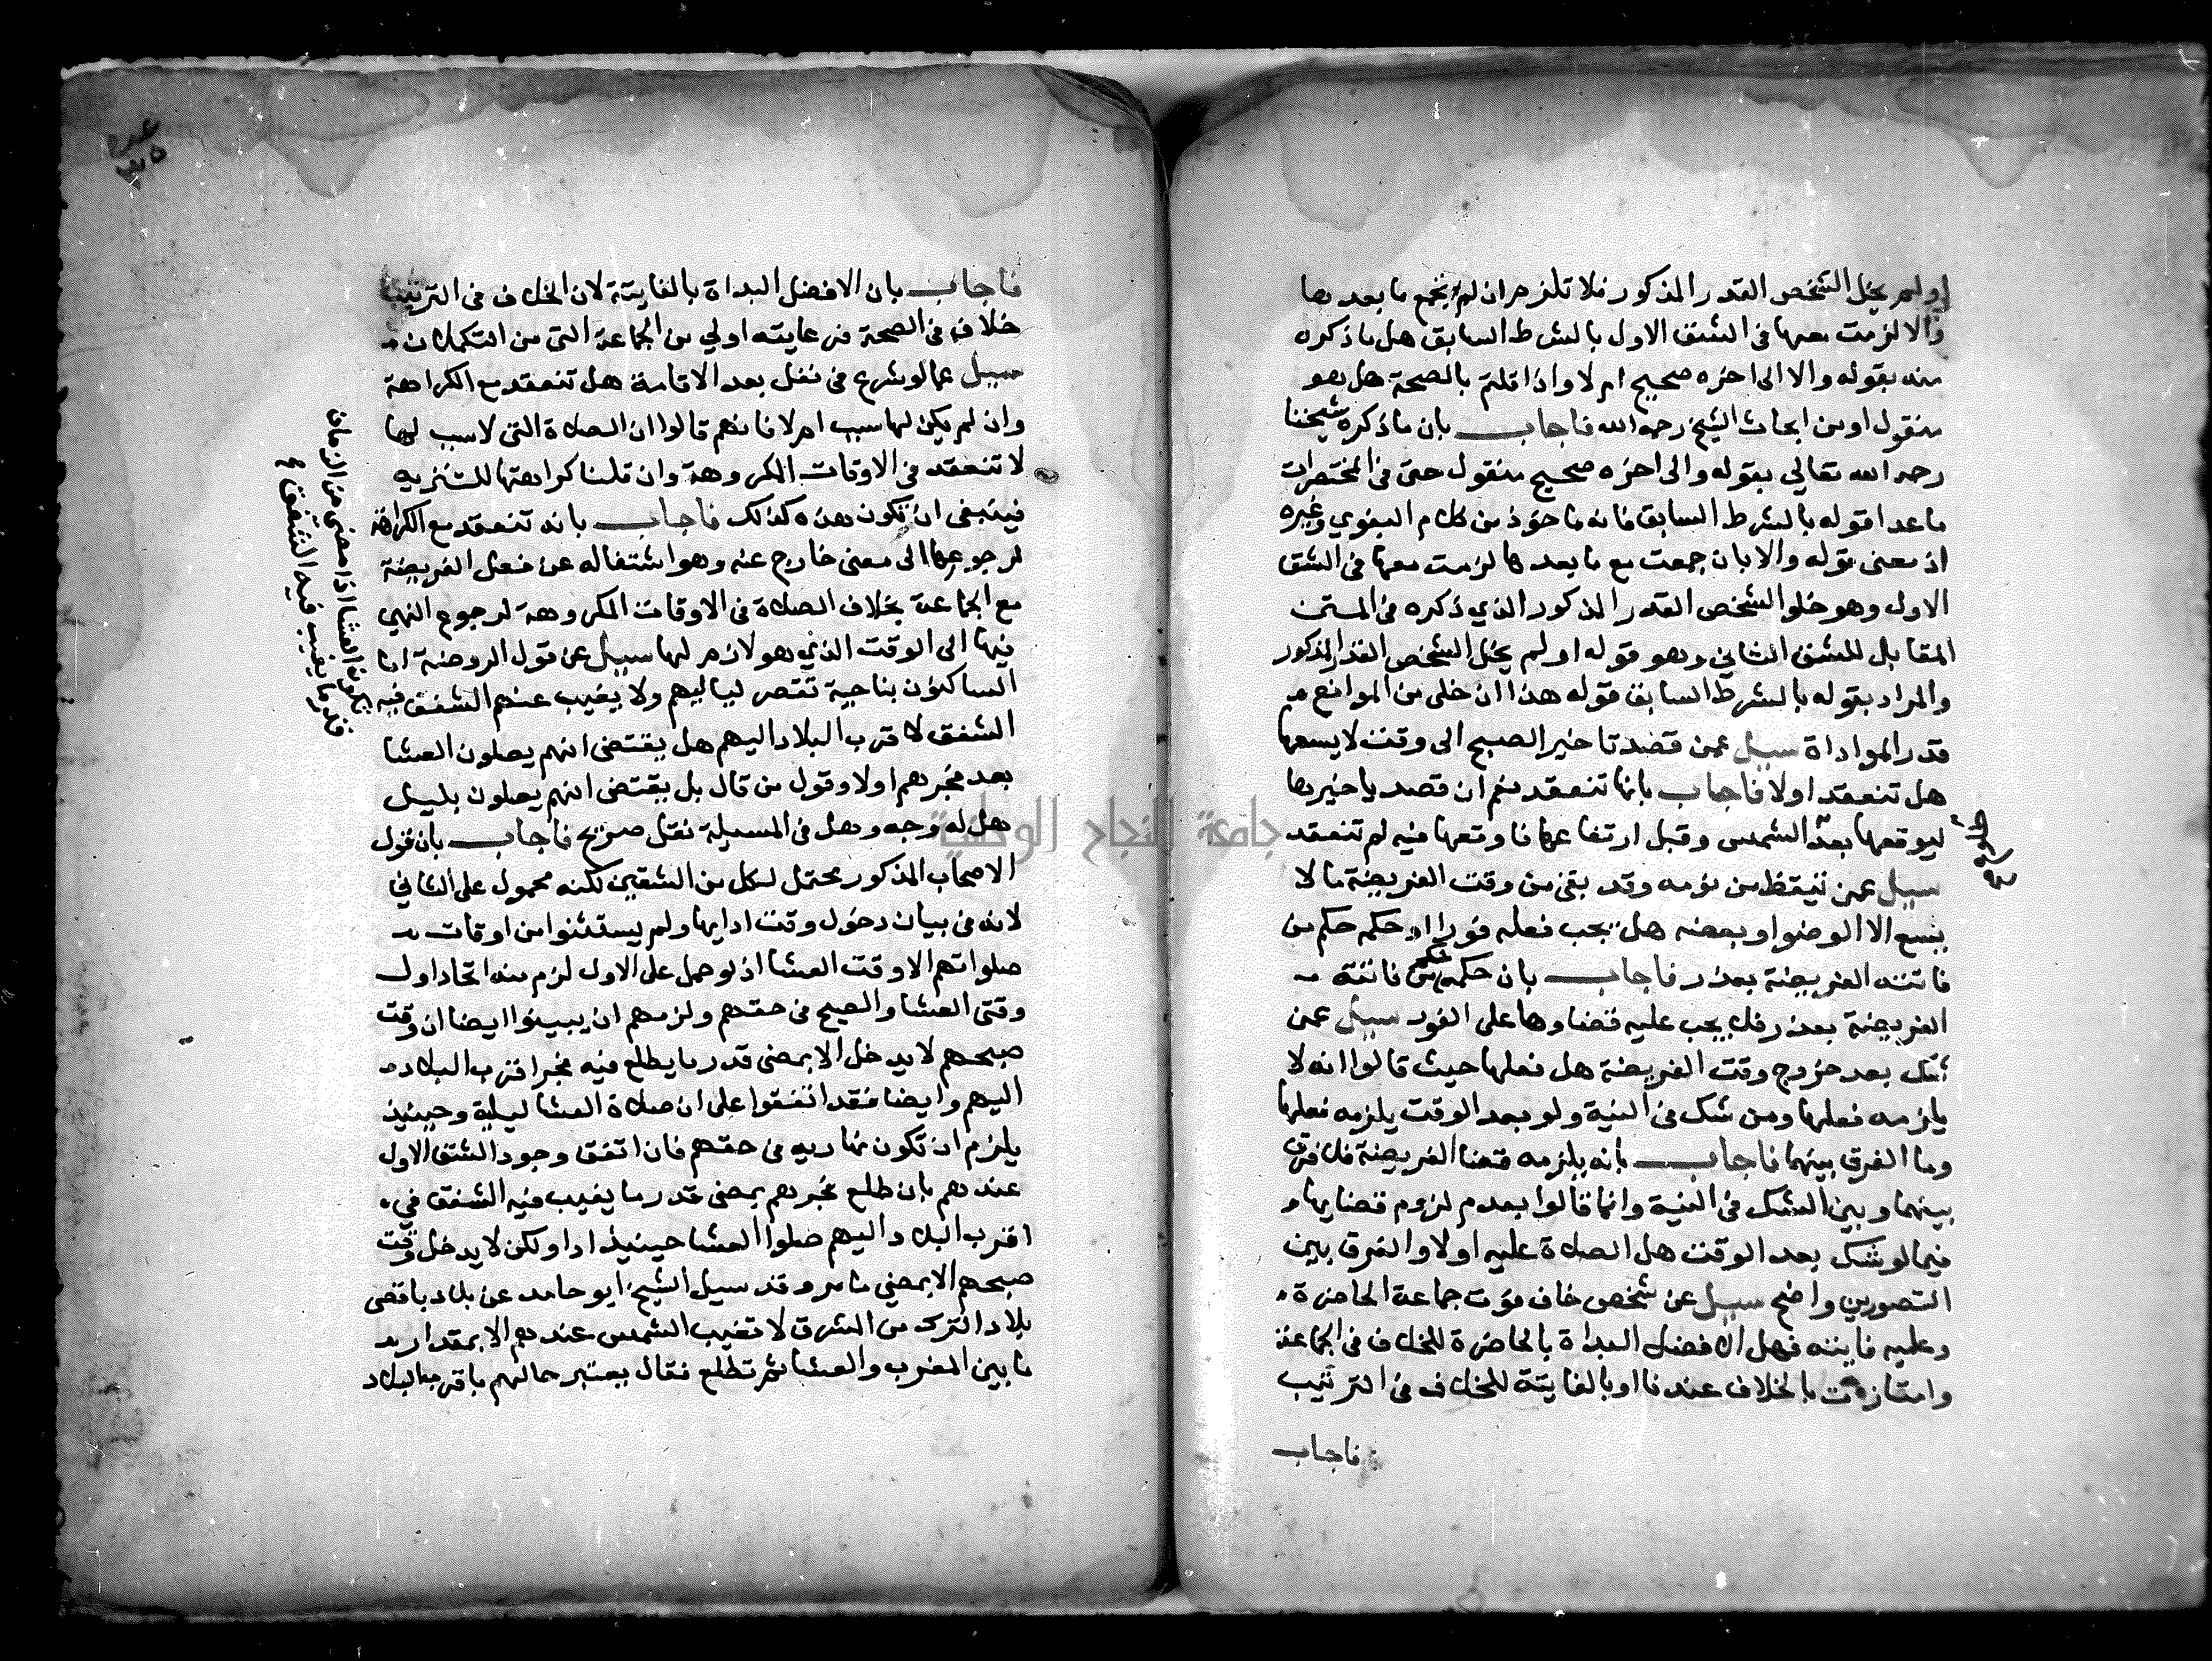 او لم يخل الشخص القدر المذكور فلا تلزم ان لم تجمع ما بعدها
والا لزمت معها في الشق الاول بالشرط السابق هل ما ذكره
منه بقوله والا الى اخره صحيح ام لا واذا قلتم بالصحة هل هو
منقول او من ابحاث الشيخ رحمه الله فاجاب بان ما ذكره شيخنا
رحمه الله تعالى بقوله والى اخره صحيح منقول حتى في المختصرات
ما عدا قوله بالشرط السابق فانه ماخوذ من كلام البغوي وغيره
اذ معنى قوله والا بان جمعت مع ما بعدها لزمت معها في الشق
الاول وهو خلو الشخص القدر المذكور الذي ذكره في المتن
المقابل للشق الثاني وهو قوله او لم يخل الشخص القدر المذكور
والمراد بقوله بالشرط السابق قوله هذا ان خلى من الموانع
قدر المواداة سيل عمن قصد تاخير الصبح الى وقت لا يسعها
هل تنعقد اولا فاجاب بانها تنعقد نعم ان قصد ياخيرها
ليوقعها بعد الشمس وقبل ارتفاعها فاوقعها فيه لم تنعقد
سيل عمن تيقظ من نومه وقد بقى من وقت الفريضة ما لا
يسع الا الوضوا وبعضه هل يجب فعله فورا او حكمه حكم من
فاتته الفريضة بعذر فاجاب بان حكمه حكم من فاتته
الفريضة بعذر فلا يجب عليه قضاوها على الفور سيل عمن
شك بعد خروج وقت الفريضة هل فعلها حيث قالوا انه لا
يلزمه فعلها ومن شك في النية ولو بعد الوقت يلزمه فعلها
وما الفرق بينهما فاجاب بانه يلزمه قضا الفريضة فلا فرق
بينهما وبين الشك في النية وانما قالوا بعدم لزوم قضايها
فيما لو شك بعد الوقت هل الصلاة عليه اولا والفرق بين
التصورين واضح سيل عن شخص خاف فوت جماعة الحاضرة
وعليه فايته فهل الافضل البداة بالحاضرة للخلاف في الجماعة
وامتازت بالخلاف عندنا او بالفايتة للخلاف في الترتيب
فاجاب
فاجاب بان الافضل البداة بالفايتة لان الخلاف في الترتيب
خلاف في الصحة فرعايته اولي من الجماعة التي من التكملات
سيل عما لو شرع في نفل بعد الاقامة هل تنعقد مع الكراهة
وان لم يكن لها سبب ام لا فانهم قالوا ان الصلاة التي لا سبب لها
لا تنعقد في الاوقات المكروهة وان قلنا كراهتها للتنزيه
فينبغي ان تكون هذه كذلك فاجاب بانه تنعقد مع الكراهة
لرجوعها الى معنى خارج عنه وهو اشتغاله عن فعل الفريضة
مع الجماعة بخلاف الصلاة في الاوقات المكروهة لرجوع النهي
فيها الى الوقت الذي هو لازم لها سيل عن قول الروضة اما
الساكنون بناحية تقصر لياليهم ولا يغيب عنهم الشفق فيه
الشفق لاقرب البلاد اليهم هل يقتضى انهم يصلون العشا
بعد فجرهم اولا وقول من قال بل يقتضى انهم يصلون بليل
هل له وجه وهل في المسيلة نقل صريح فاجاب بان قول
الاصحاب المذكور محتمل لكل من الشقين لكنه محمول على الثاني
لانه في بيان دخول وقت ادايها ولم يستثنوا من اوقات
صلواتهم الا وقت العشا اذ لو حمل على الاول لزم منه اتحاد اول
وقتى العشا والصبح في حقهم ولزمهم ان يبينوا ايضا ان وقت
صبحهم لا يدخل الا بمضى قدر ما يطلع فيه فجر اقرب البلاد
اليهم وايضا فقد اتفقوا على ان صلاة العشا ليلية وحينيذ
يلزم ان تكون نهارية في حقهم فان اتفق وجود الشق الاول
عندهم بان طلع فجرهم بمضى قدر ما يغيب فيه الشفق في
اقرب البلاد اليهم صلوا العشا حينيذ ادا ولكن لا يدخل وقت
صبحهم الا بمضي ما مر وقد سيل الشيخ ابو حامد عن بلاد باقصى
بلاد الترك من المشرق لا تغيب الشمس عندهم الا بمقدار
ما بين المغرب والعشا ثم تطلع فقال يعتبر حالهم باقرب البلاد
العشا اذا مضى من الزمان
قدر ما يغيب فيه الشفق